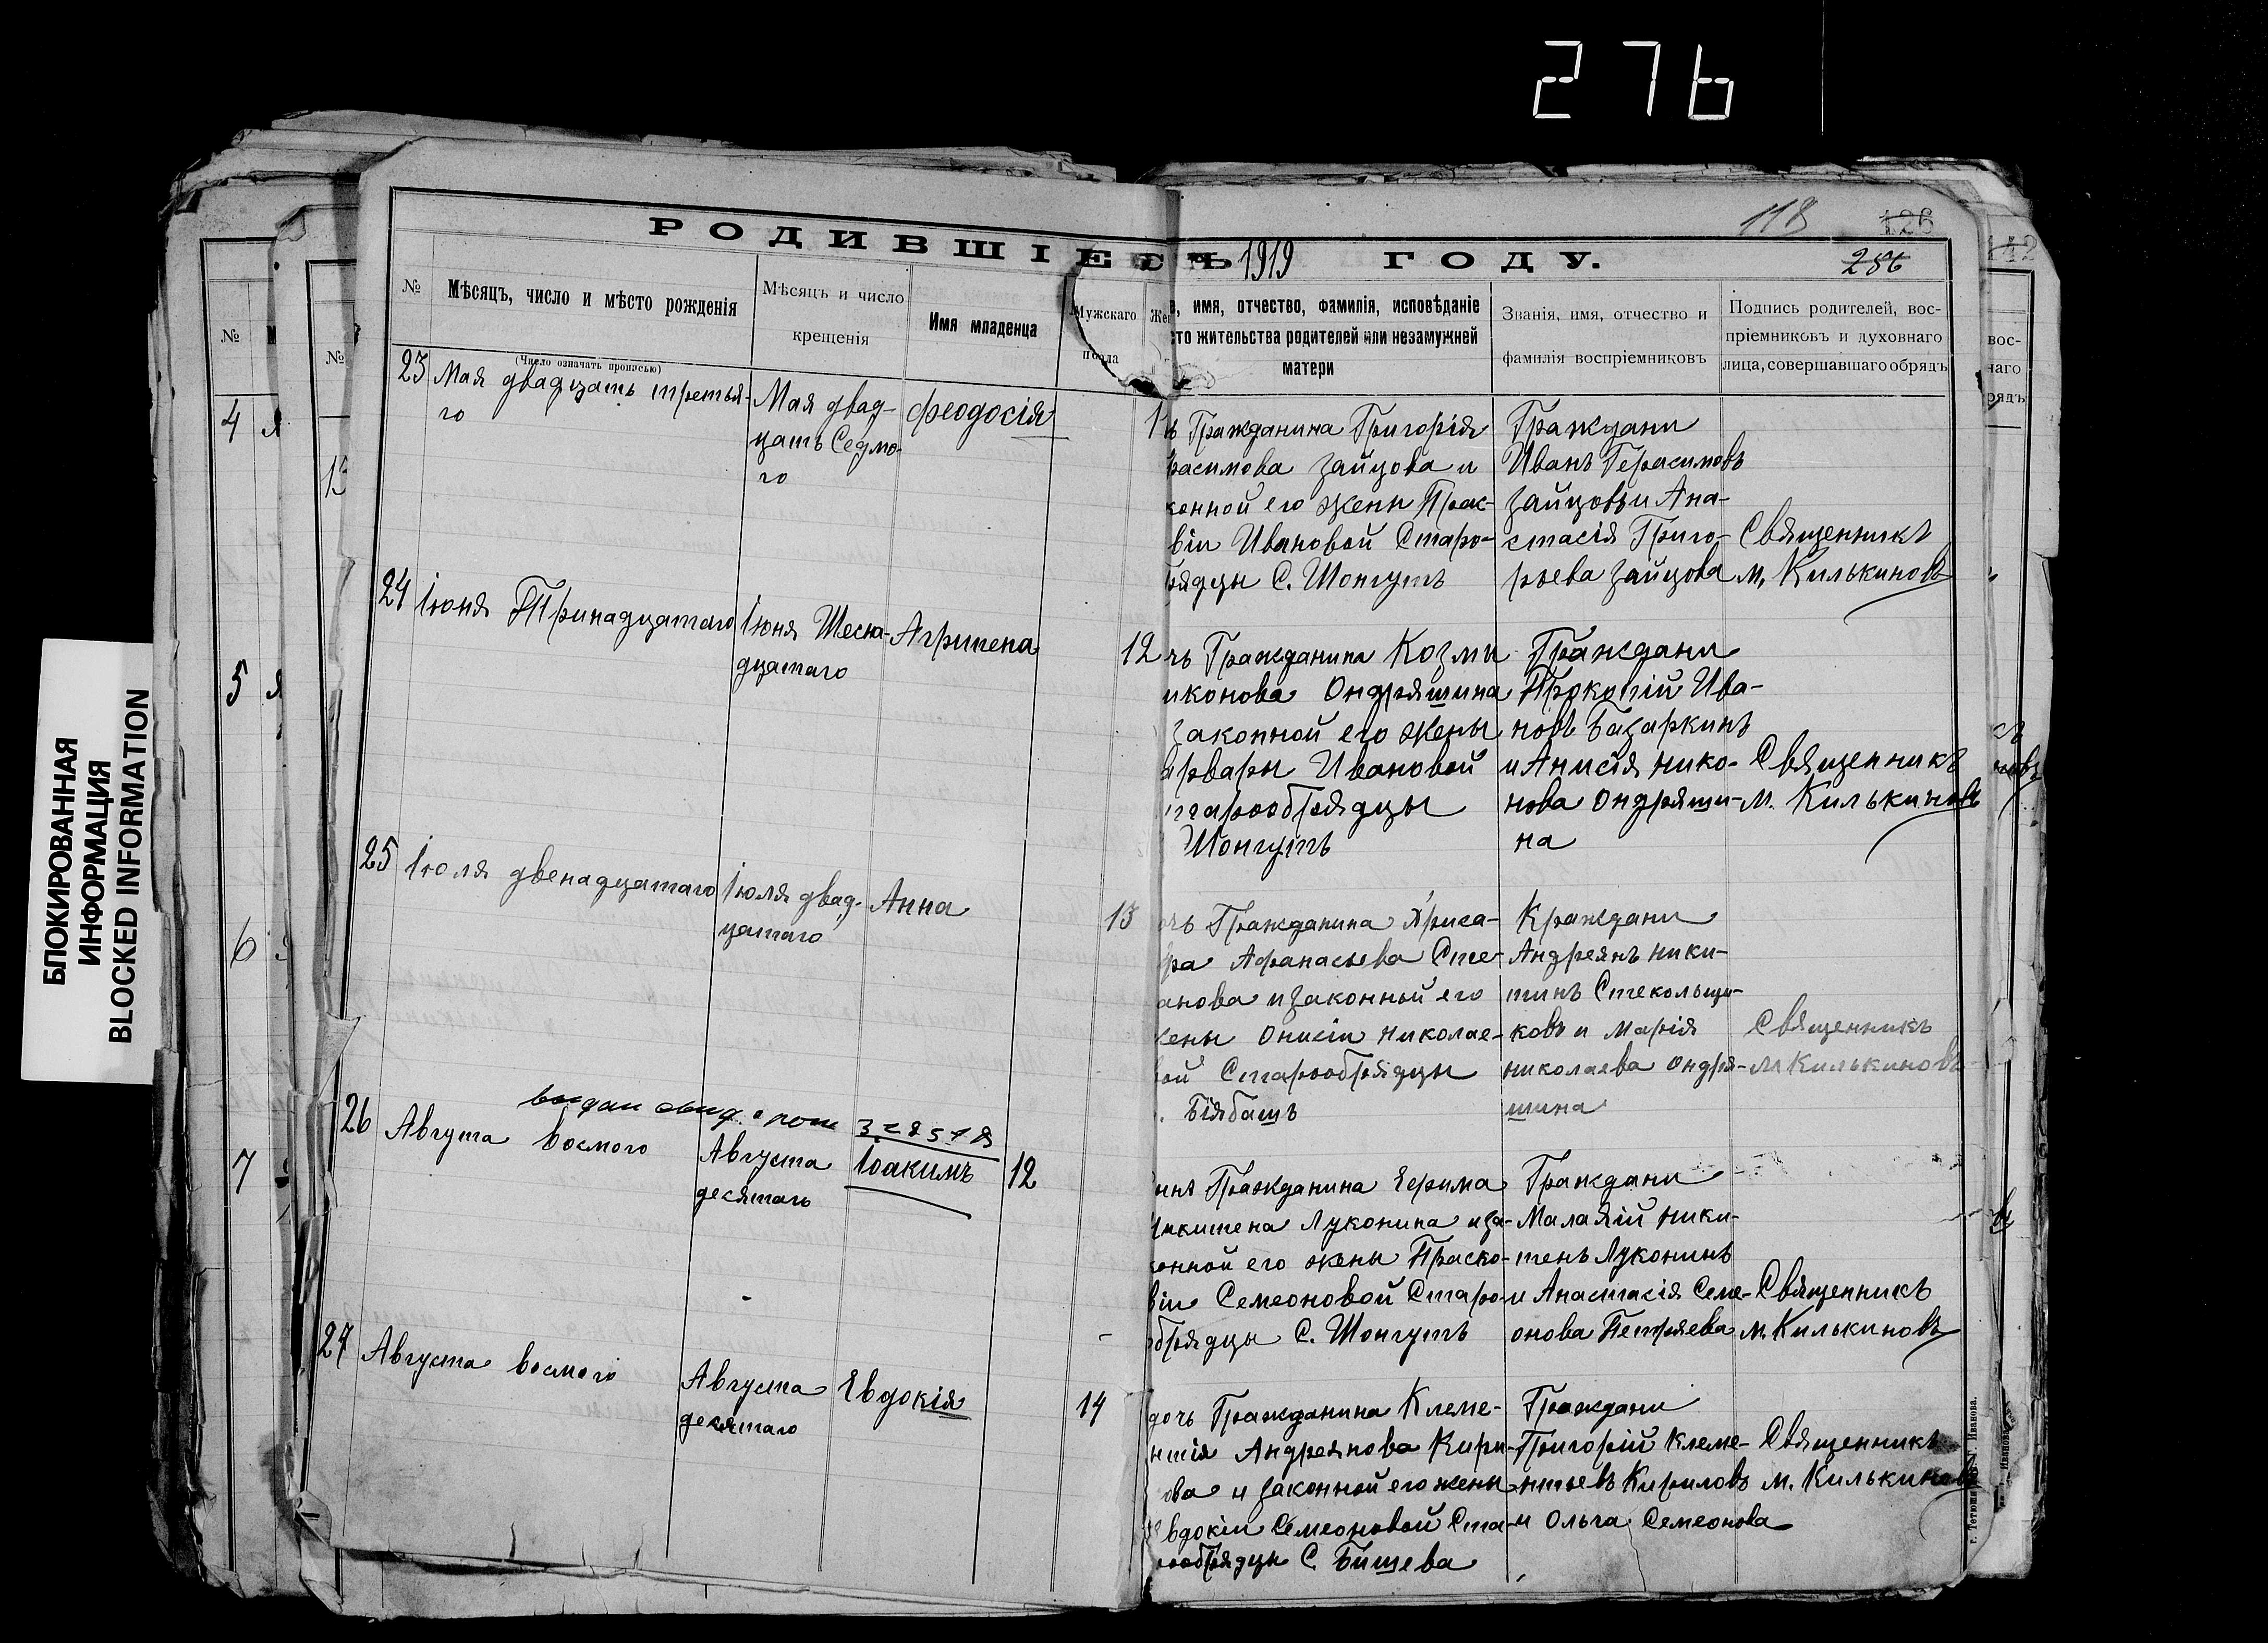 276
118
126
286
142
РОДИВШІЕСЯ 1919 ГОДУ.
№
Мѣсяцъ, число и мѣсто рожденія
(Число означать прописью)
Мѣсяцъ и число
крещенія
Имя младенца
Мужскаго
пола
Же
, имя, отчество, фамилія, исповѣданіе
то жительства родителей или незамужней
матери
Званія, имя, отчество и
фамилія воспріемниковъ
Подпись родителей, вос-
пріемниковъ и духовнаго
лица, совершавшаго обрядъ
23 Мая двадцать третья-
го
Мая двад-
цать Седмо-
го
Феодосія
1
ь Гражданина Григорія
расимова Зайцова и
конной его жены Прас-
віи Ивановой Старо-
рядцы С. Шонгутъ
Граждани
Иванъ Герасимовъ
Зайцовъ и Ана-
стасія Григо-
рьева Зайцова
Священникъ
М. Килькиновъ
24 Іюня Тринадцатаго
Іюня Шесна-
дцатаго
Агрипена
12
чь Гражданина Козмы
иконова Ондряшина
законной его жены
рвары Ивановой
тарообрядцы
Шонгутъ
Граждани
Прокопій Ива-
новъ Базаркинъ
и Анисія Нико-
нова Ондряши-
на
Священникъ
М. Килькиновъ
25 Іюля двенадцатаго
Іюля двад-
цатаго
Анна
13
очь Гражданина Хриса-
фа Афанасьева Сте-
анова и законной его
жены Онисіи Николае-
вой Старообрядцы
. Біябашъ
Краждани
Андреянъ Ники-
тинъ Стекольщи-
ковъ и Марія
Николаева Ондря-
шина
Священникъ
М Килькиновъ
26 Августа восмого
Августа
десятаго
Іоакимъ
12
ынъ Гражданина Ефима
Никитена Луконина и за-
конной его жены Праско-
віи Семеоновой Старо-
обрядцы С. Шонгутъ
Граждани
Малафій Ники-
тенъ Луконинъ
и Анастасія Семе-
онова Петряева
Священникъ
М. Килькиновъ
27 Августа восмого
Августа
десятаго
Евдокія
14
дочь Гражданина Клеме-
нтія Андреянова Кири-
ова и законной его жены
Евдокіи Семеоновой Ста-
рообрядцы С. Бишева
Граждани
Григорій Клеме-
нтьевъ Кириловъ
и Ольга Семеонова
Священникъ
М. Килькиновъ
№
4
5
6
7
№
13
БЛОКИРОВАННАЯ
ИНФОРМАЦИЯ
BLOCKED INFORMATION